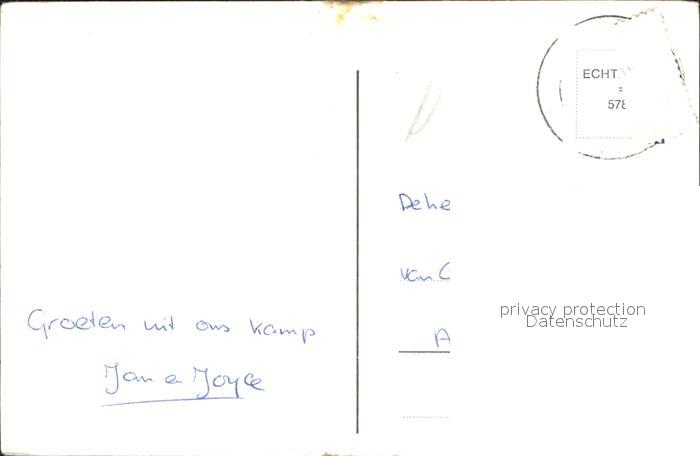 Groeten uit ons kamp
Jan en Joyce
ECHT
578
Dehe
van C
A
privacy protection
Datenschutz